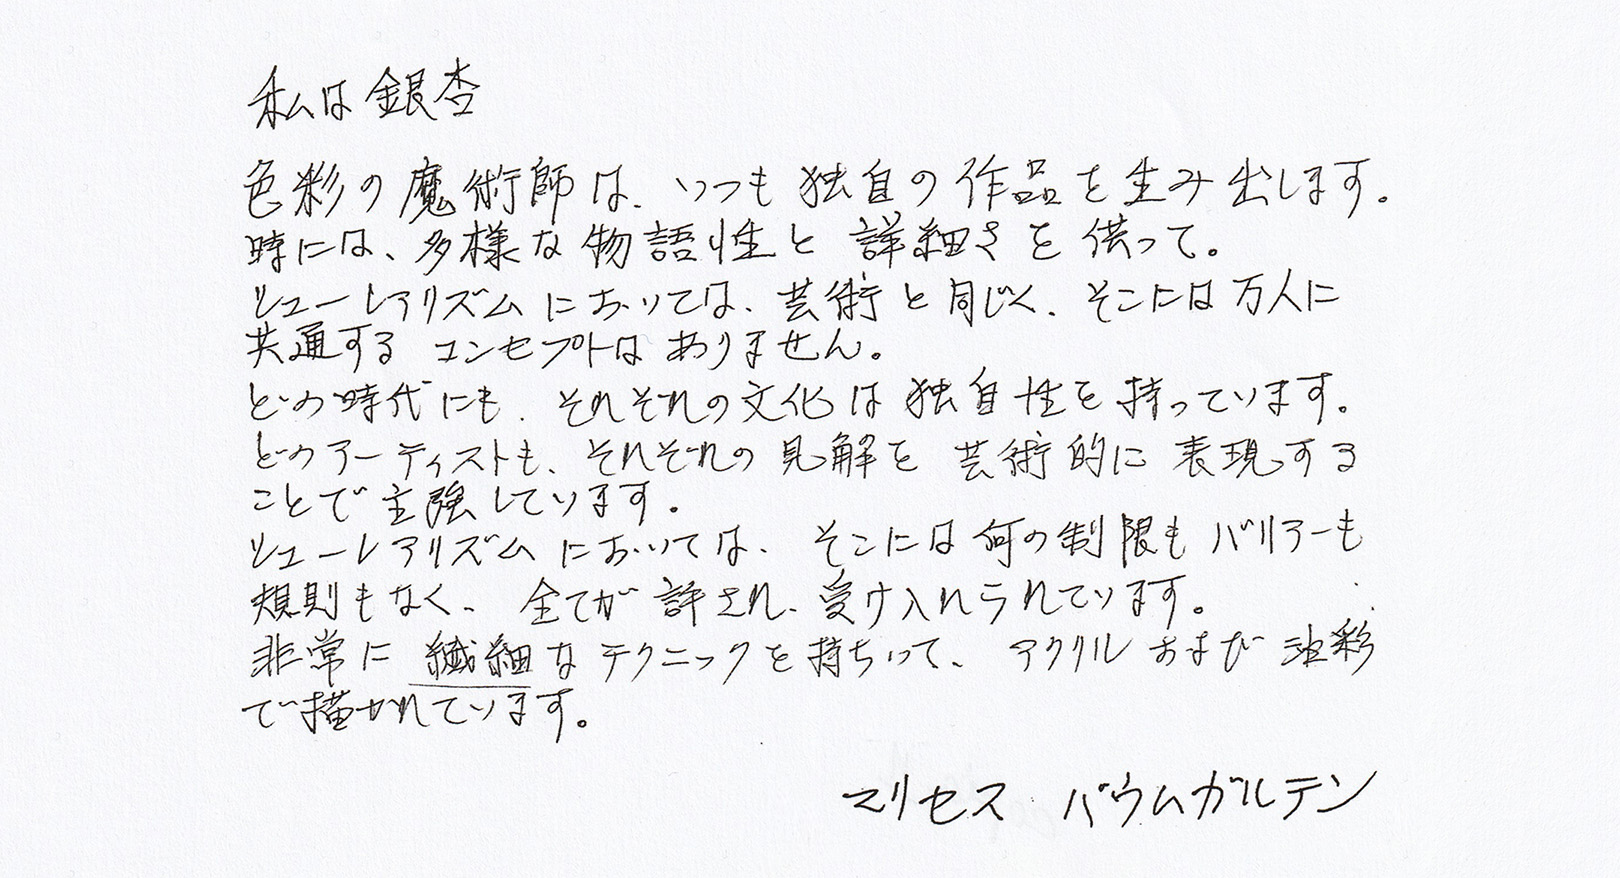 私は銀杏
色彩の魔術師は、いつも独自の作品を生み出します。
時には、多様な物語性と詳細さを供って。
シューレアリズムにおいては、芸術と同じく、そこには万人に
共通するコンセプトはありません。
どの時代にも、それぞれの文化は独自性を持っています。
どのアーティストも、それぞれの見解を芸術的に表現する
ことで主張しています。
シューレアリズムにおいては、そこには何の制限もバリアーも
規則もなく、全てが許され、受け入れられています。
非常に繊細なテクニックを持ちいて、アクリルおよび油彩
で描かれています。
マリセス バウムガルテン